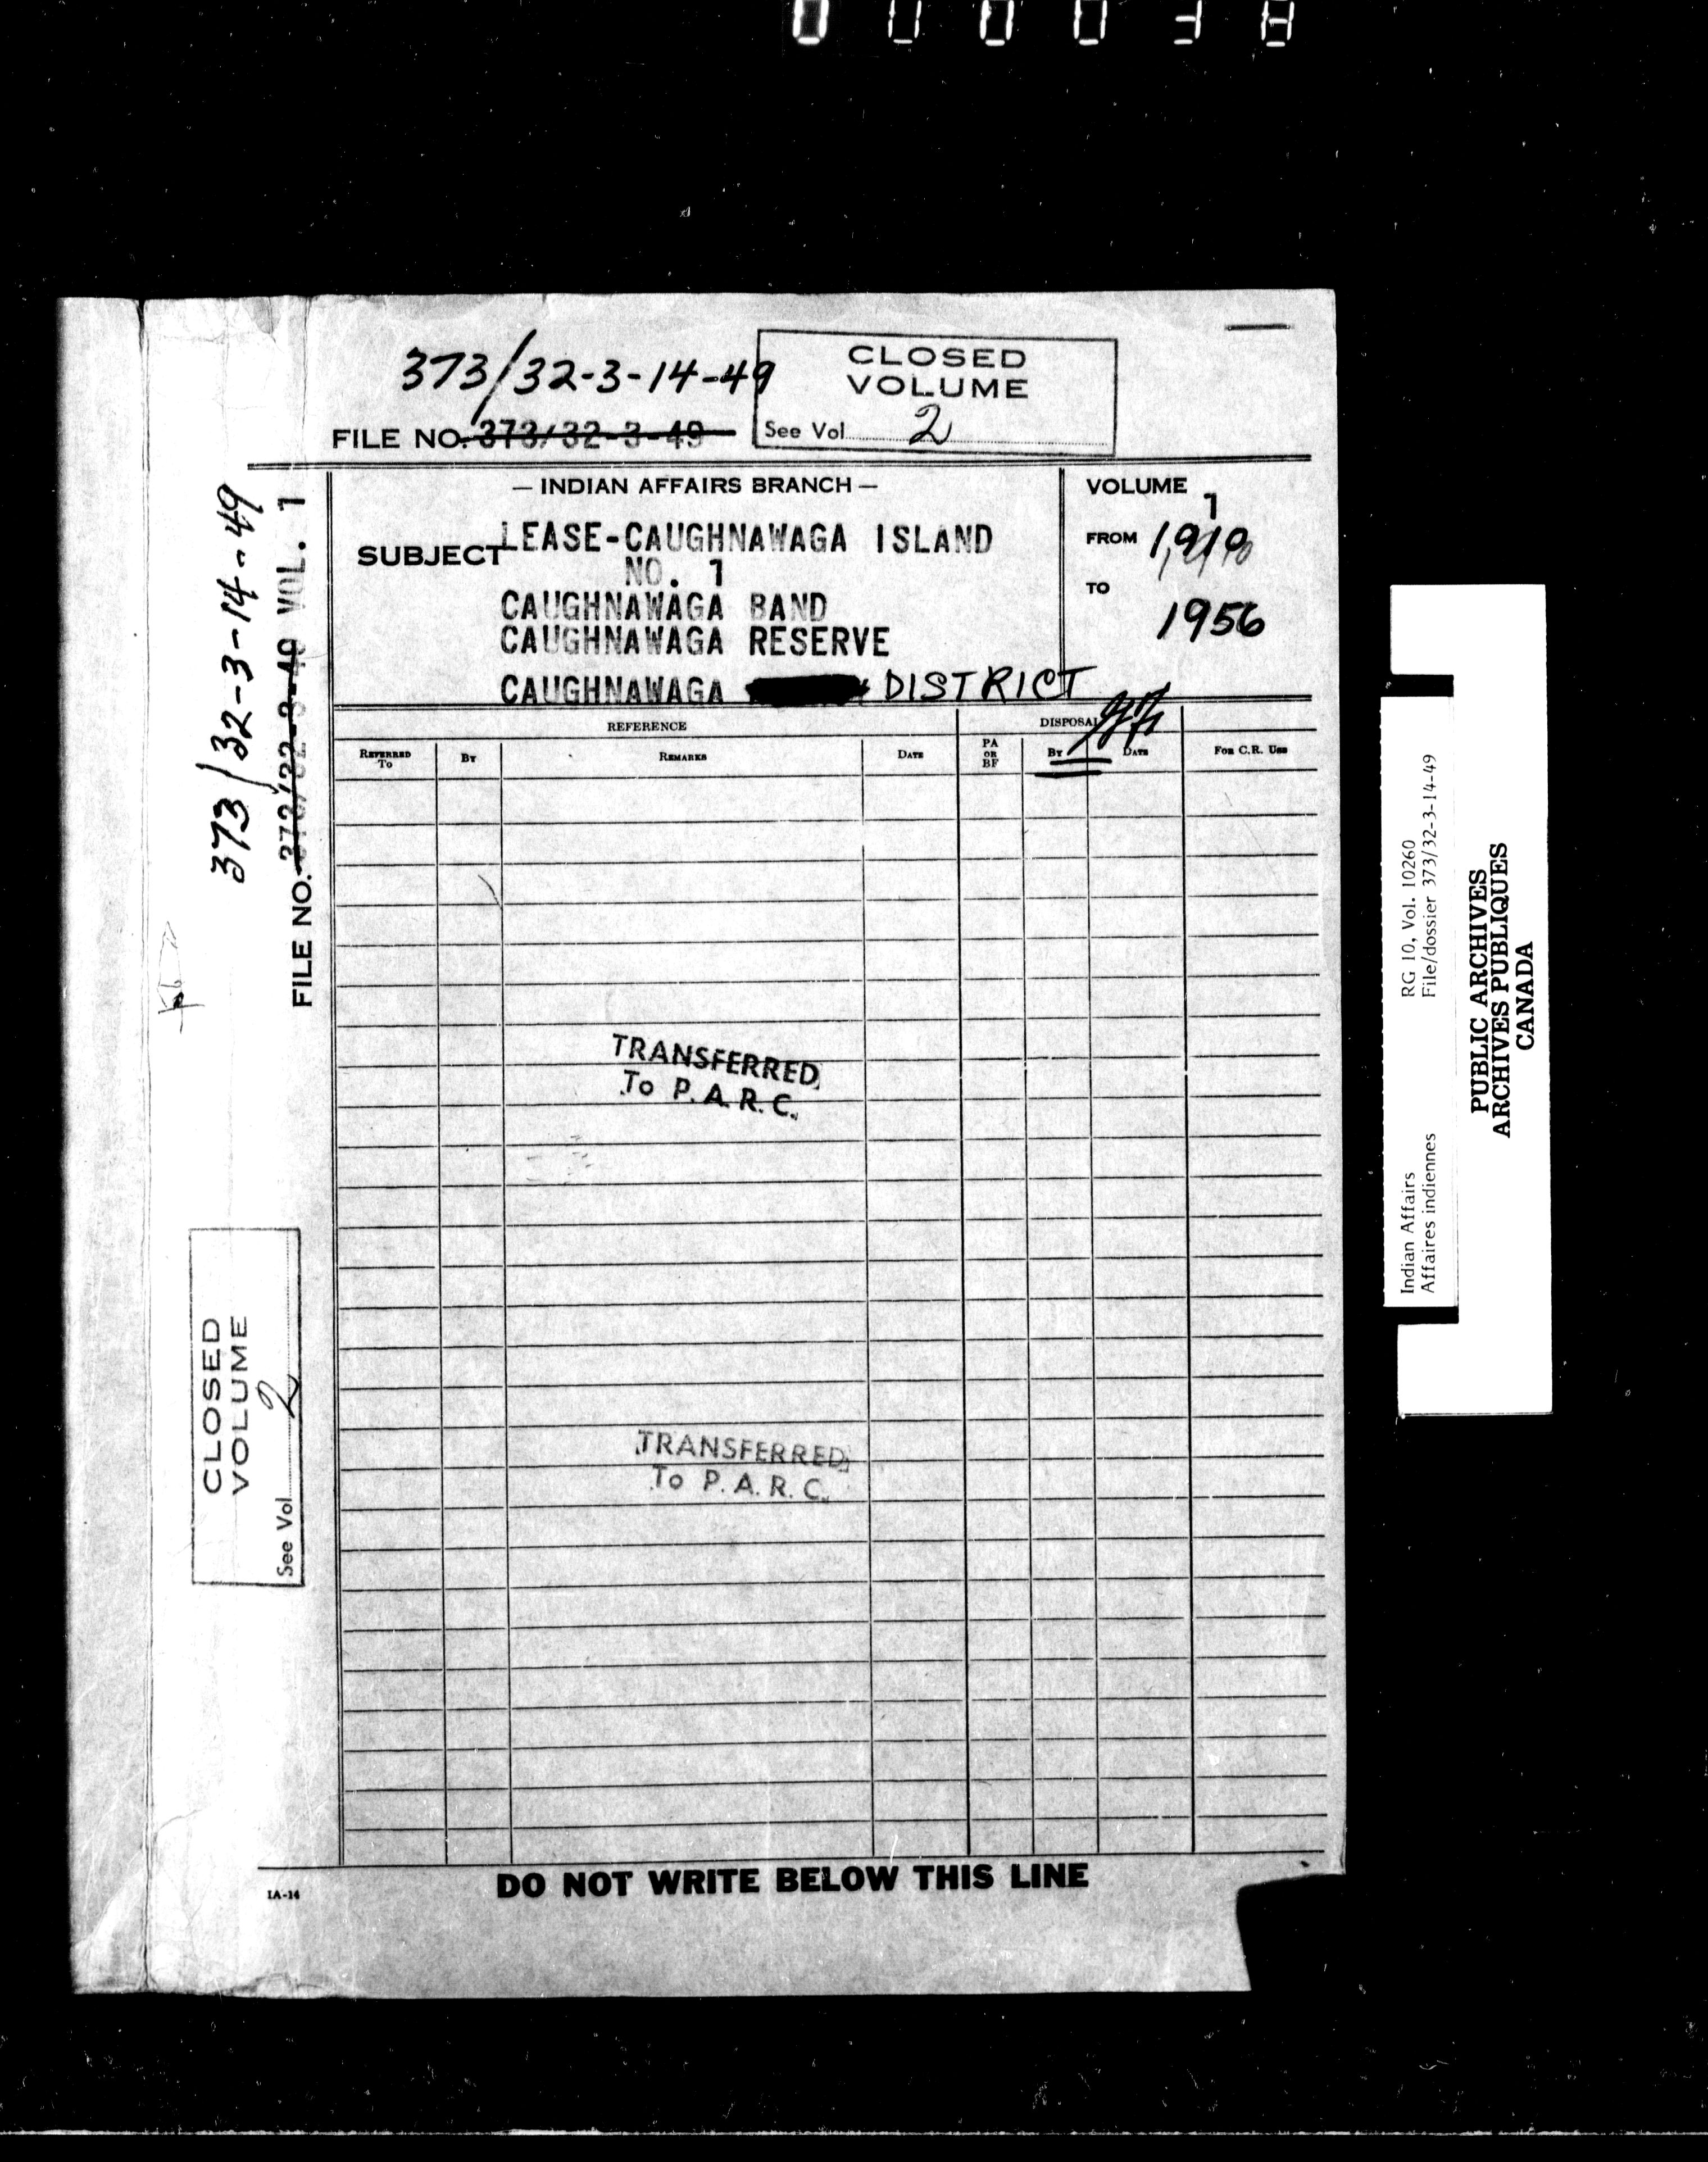 000038
373/32-3-14-49
CLOSED
VOLUME
See Vol. 2
FILE NO. 373/32-3-49
— INDIAN AFFAIRS BRANCH —
SUBJECT LEASE-CAUGHNAWAGA ISLAND
NO. 1
CAUGHNAWAGA BAND
CAUGHNAWAGA RESERVE
CAUGHNAWAGA DISTRICT
VOLUME 1
FROM
TO
1956
REFERENCE
DISPOSAL
REFERRED TO
BY
REMARKS
DATE
PA OR BF
BY
DATE
FOR C.R. USE
TRANSFERRED
TO P.A.R.C.
TRANSFERRED
TO P.A.R.C.
DO NOT WRITE BELOW THIS LINE
IA-14
373/32-3-14-49
FILE NO. 373/32-3-49 VOL. 1
CLOSED
VOLUME
See Vol. 2
Indian Affairs RG 10, Vol. 10260
Affaires indiennes File/dossier 373/32-3-14-49
PUBLIC ARCHIVES
ARCHIVES PUBLIQUES
CANADA